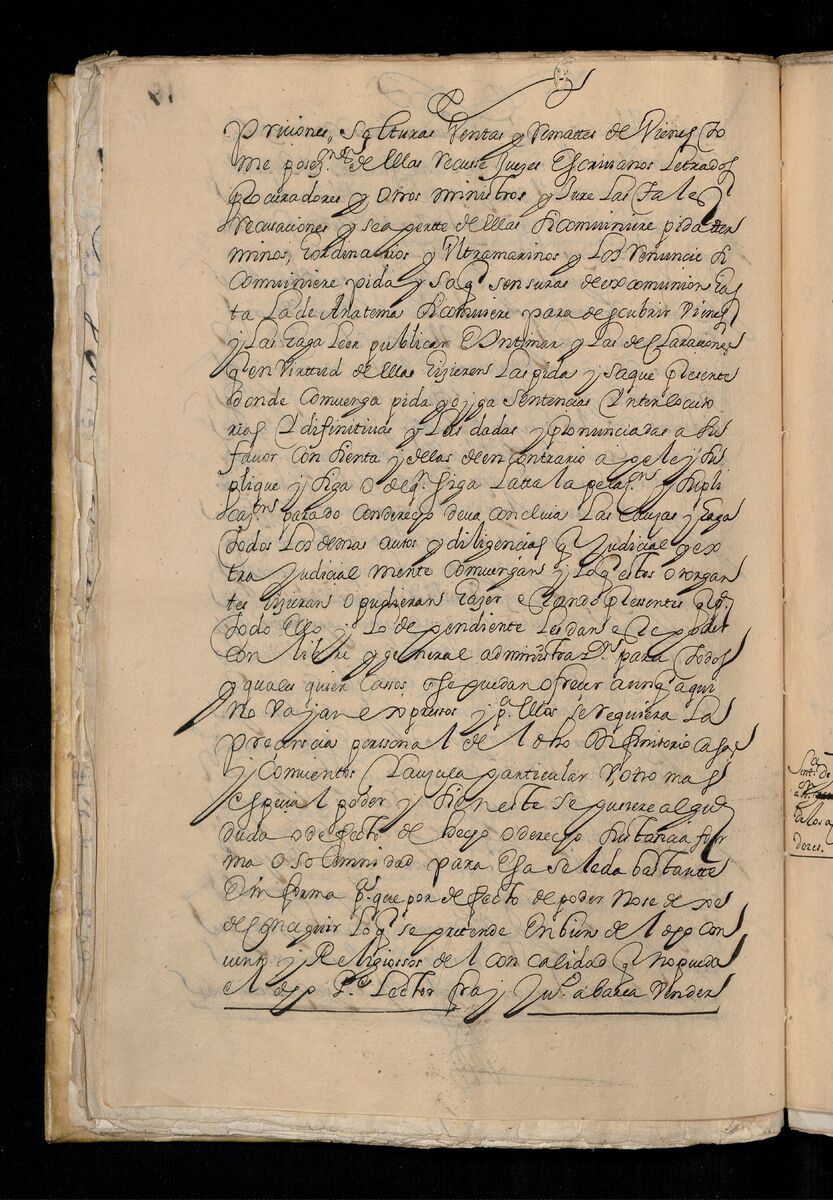 Priciones, Solturas Ventas y Remattes de Vienes to
me posezn. de ellas recuse Juezes Escrivanos Letrados
Procuradores y otros ministros y Jure las tales
recusaciones y se apertte de ellas si comviniere pida tter
minos, hordinarios y Ultramarinos y los renuncie si
Comviniere pida y saq sensuras de excomunion has
ta la de Anatema si comviniere para descubrir Vienes
y las haga leer publicar E Yntimar y las desclaraciones
q en Virttud de ellas hizieren las pida y saque pressente
donde Comvenga pida y oyga sentencias Ynterlocuto
rias Y difinitivas y las dadas y Pronunciadas a su
favor Consienta y dellas de en contrario apele y su
plique y siga o de q. siga la tal apelasn. y supli
casn. hasta do Con derecho deva concluia las Causas y haga
todos los demas autos y diligencias q Judicial y ex
tra Judicial mente Comvengan y los q estos otorgan
tes hizieran o pudieran hazer estando presentes q pa.
todo Ello y lo dependiente les dan este poder
Con libre y general administrazn. para todos
y quales quier Casos q se puedan ofrecer aunq aqui
No vayan expressos y pa. Ellos se requiera la
precencia personal de el dho Difinitorio casas
y Comventos Clausula particular U, otro mas
Especial poder y si en este se pusiere algua
duda o defecto de hecho o derecho sustancia for
ma o solemnidad para Esa se le da bastantte
En forma pa. que por defecto de poder No se dexe
de Conseguir lo q se pretende En bien de el dho Con
vento y Religiossos del con calidad q No pueda
el dho Pe. Lector fray Jun. abarca Vender
Sentа. de
de los a
dores.